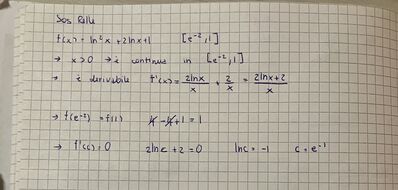 Sos Rolle
f(x) = ln²x + 2lnx + 1 [e⁻², 1]
→ x>0 → è continua in [e⁻², 1]
→ è derivabile f'(x) = 2lnx/x + 2/x = 2lnx+2/x
→ f(e⁻²) = f(1) 4 - 4 + 1 = 1
→ f'(c) = 0 2lnc + 2 = 0 lnc = -1 c = e⁻¹